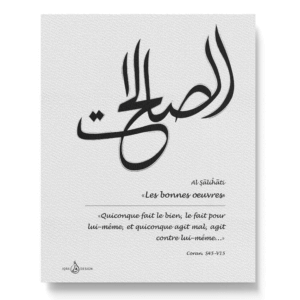 الصالحات
Al Ṣāliḥāti
«Les bonnes oeuvres»
«Quiconque fait le bien, le fait pour
lui-même, et quiconque agit mal, agit
contre lui-même...»
Coran, S45-V15